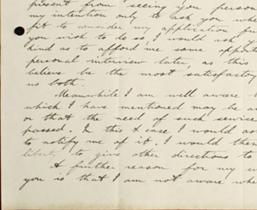 present from seeing you person
my intention only to ask you whe
fit to consider my application fo
you wish to do so, I would ask yo
kind as to afford me some oppo
personal interview later, as this
believe be the most satisfactory
us both.
Meanwhile I am well aware t
which I have mentioned may be a
or that the need of such service
passed. In this case I would as
to notify me of it. I would then
liberty to give other directions to
A further reason for my w
you is that I am not aware whe